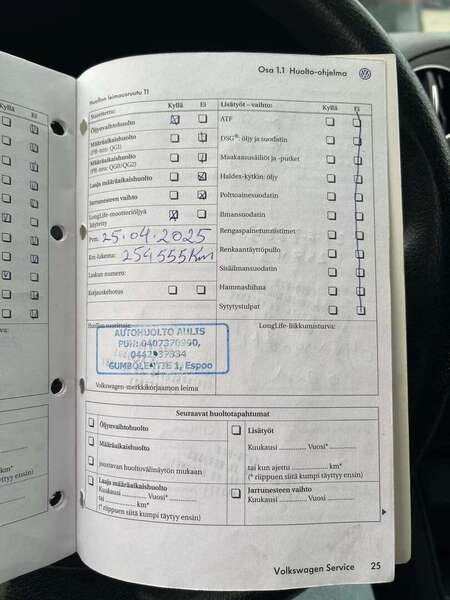 Osa 1.1 Huolto-ohjelma
Huollon leimausruutu 11
Kyllä Ei
Suoritettu: Kyllä Ei
Öljynvaihtohuolto
Määräaikaishuolto
(PR-nro: QG1)
Määräaikaishuolto
(PR-nro: QG0/QG2)
Laaja määräaikaishuolto
Jarrunesteen vaihto
LongLife-moottoriöljyä
käytetty
Pvm. 25.04.2025
Km-lukema: 254555km
Laskun numero:
Korjauskehotus
Lisätyöt – vaihto: Kyllä Ei
ATF
DSG®: öljy ja suodatin
Maakaasusäiliöt ja -putket
Haldex-kytkin: öljy
Polttoainesuodatin
Ilmansuodatin
Rengaspainetunnistimet
Renkaantäyttöpullo
Sisäilmansuodatin
Hammashihna
Sytytystulpat
Huollon suorittaja:
LongLife-liikkumisturva:
AUTOHUOLTO AULTS
PUH: 0407370990,
GUMBÖLENTIE 1, Espoo
Volkswagen-merkkikorjaamon leima
Seuraavat huoltotapahtumat
Öljynvaihtohuolto
Määräaikaishuolto
joustavan huoltovälinäytön mukaan
Laaja määräaikaishuolto
Kuukausi ............ Vuosi* ............
tai ............ km*
(* riippuen siitä kumpi täytyy ensin)
Lisätyöt
Kuukausi ............ Vuosi* ............
tai kun ajettu ............ km*
(* riippuen siitä kumpi täytyy ensin)
Jarrunesteen vaihto
Kuukausi ............ Vuosi ............
Volkswagen Service 25